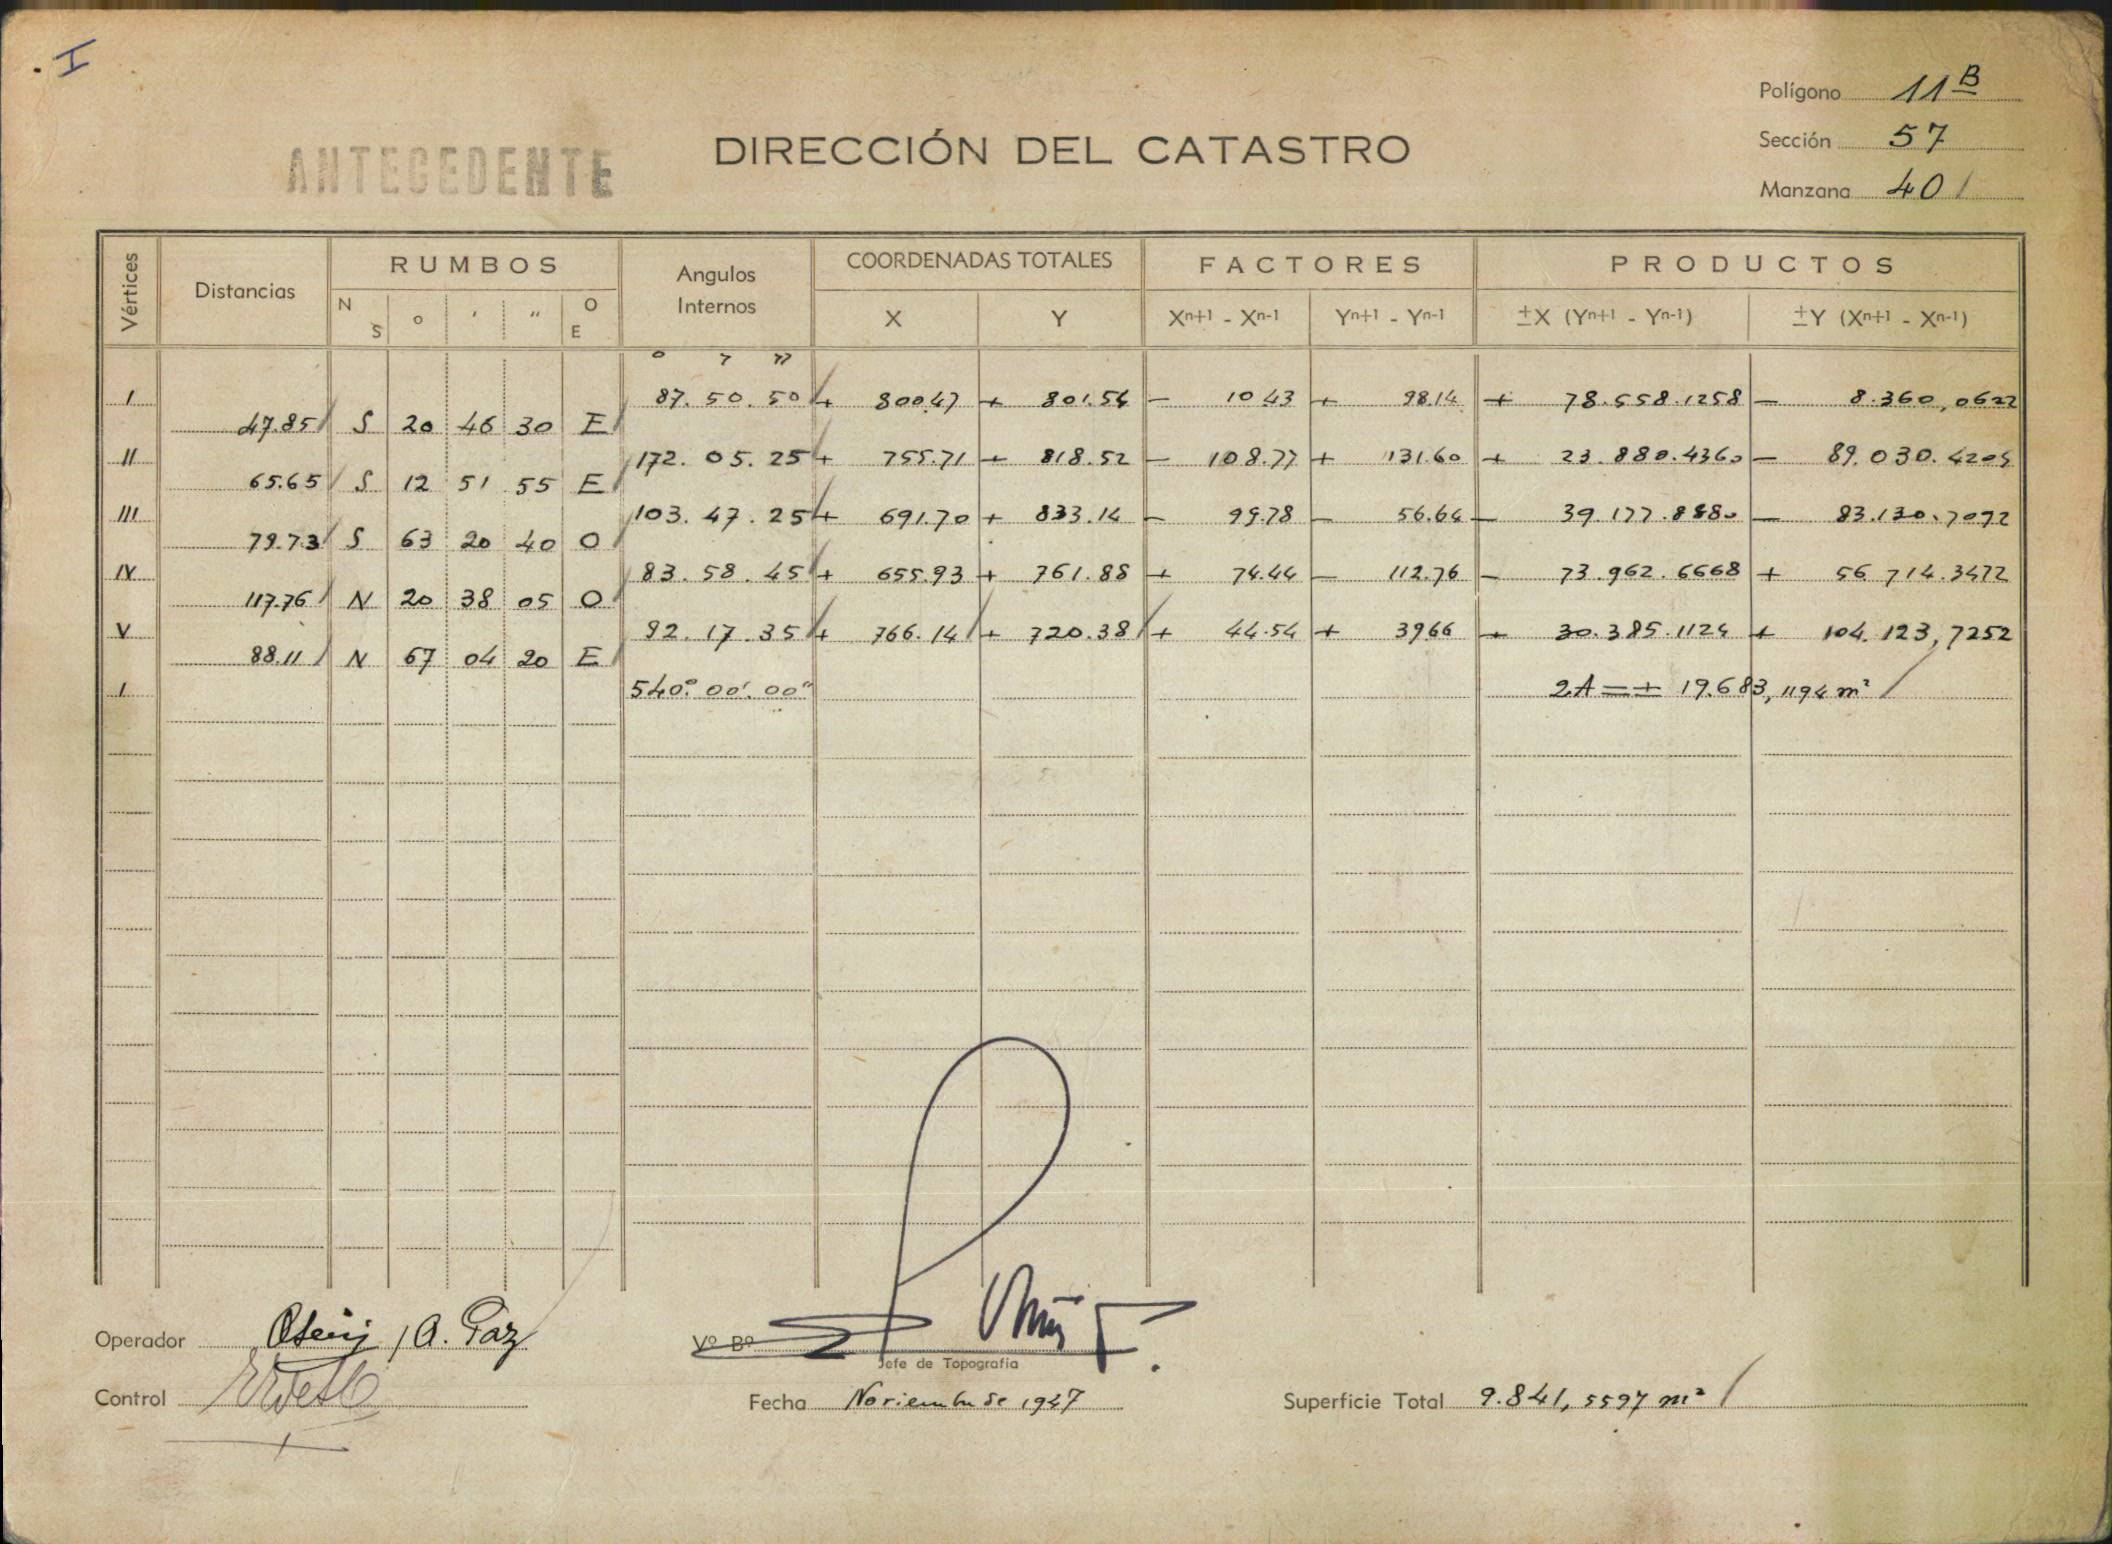 I
Polígono 11 B
ANTECEDENTE
DIRECCIÓN DEL CATASTRO
Sección 57
Manzana 40
Vértices Distancias RUMBOS Angulos Internos COORDENADAS TOTALES FACTORES PRODUCTOS
N S ° ' " O E X Y Xⁿ⁺¹ - Xⁿ⁻¹ Yⁿ⁺¹ - Yⁿ⁻¹ ±X (Yⁿ⁺¹ - Yⁿ⁻¹) ±Y (Xⁿ⁺¹ - Xⁿ⁻¹)
° ' "
I 87. 50. 50 + 800.47 + 801.54 - 10.43 + 98.14 + 78.558.1258 - 8.360,0622
47.85 S 20 46 30 E
II 172. 05. 25 + 755.71 + 818.52 - 108.77 + 131.60 + 23.880.4360 - 89.030.4204
65.65 S 12 51 55 E
III 103. 47. 25 + 691.70 + 833.14 - 99.78 - 56.64 - 39.177.8880 - 83.130.7092
79.73 S 63 20 40 O
IV 83. 58. 45 + 655.93 + 761.88 + 74.44 - 112.76 - 73.962.6668 + 56 714.3472
117.76 N 20 38 05 O
V 92. 17. 35 + 766.14 + 720.38 + 44.54 + 3966 + 30.385.1124 + 104.123,7252
88.11 N 67 04 20 E
I 540° 00' 00" 2A = + 19.683,1194 m²
Operador A. Paz
Vº Bº
Jefe de Topografía
Control
Fecha Noviembre de 1947
Superficie Total 9.841,5597 m²